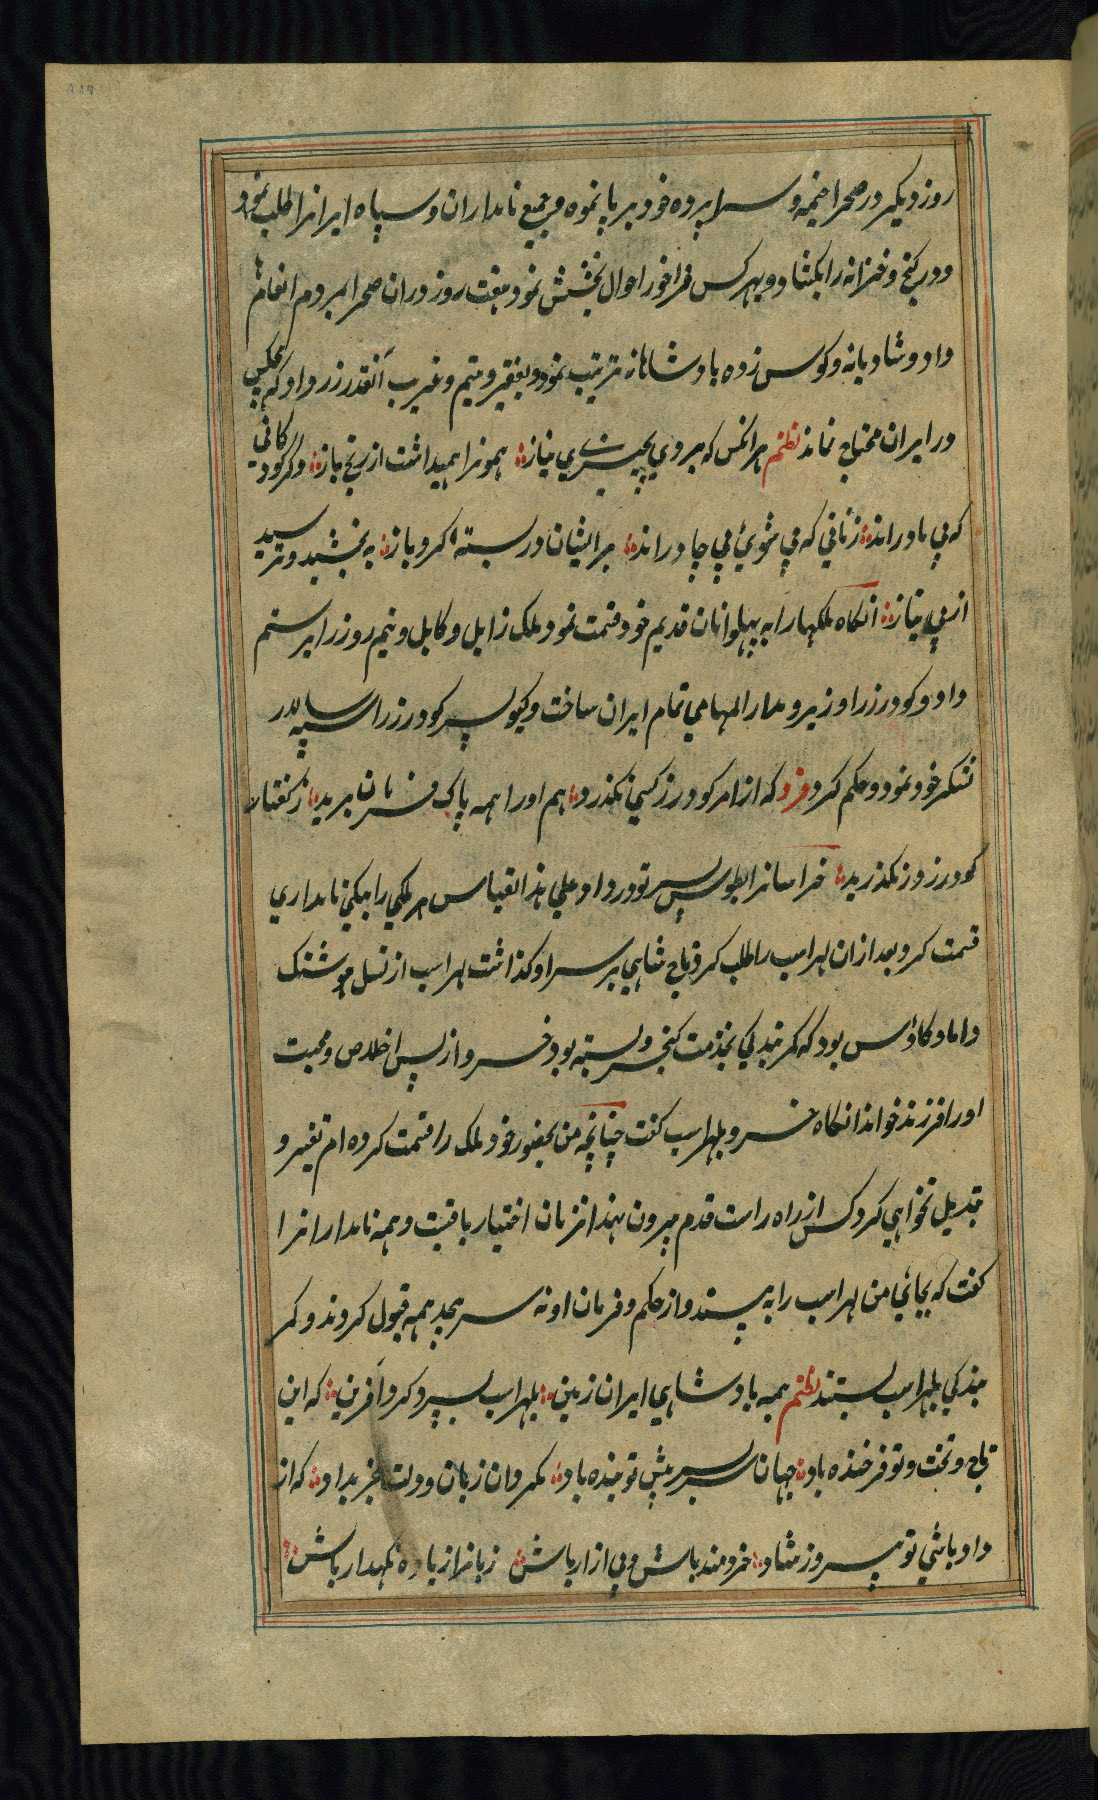 روز دیکر در صحرا خیمه و سراپرده خود بر پا نموه و جمیع نامداران و سپاه ایرانرا طلب نمود
و در کنج و خزانه را بکشاد و بهر کس فراخور احوال بخشش نمود هفت روز دران صحرا بمردم انعام ها
داد و شادیانه و کوس زده بادشاهانه ترتیب نمود و بفقیر و یتیم و غریب آنقدر زر داد که هیچکس
در ایران محتاج نماند نظم هر انکس که بودی بچیزی نیاز همونرا همیداشت از رنج باز دکر کودکانی
که بی مادراند زنانی که بی شوئ بی چادراند برایشان در بسته کرد باز به بخشید و ترسید
از بی نیاز انکاه ملکها را به پهلوانان قدیم خود قسمت نمود ملک زابل و کابل و نیم روز را برستم
داد و کودرز را وزیر و مدار المهامی تمام ایران ساخت و کیو پسر کودرز را سپه سالار
لشکر خود نمود و حکم کرد فرد که از امر کودرز کسی نکذرد هم او را همه پاک فرمان برید ز کفتار
کودرز وز نکذرید خراسانرا بطوس پسر نوذر داد و علی هذا القیاس هر ملکی را بیکی نامداری
قسمت کرد بعد ازان لهراسپ را طلب کرد و تاج شاهی بر سر او کذاشت لهراسپ از نسل هوشنک
داماد کاؤس بود که کمر بندکی بخذمت کیخسرو بسته بود خسرو از پس اخلاص و محبت
او را فرزند خواند انکاه خسرو بلهراسپ کفت چنانچه من بحضور خود ملک را قسمت کرده ام تغییر و
تبدیل نخواهی کرد و کس از راه راست قدم بیرون نهند انزمان اختیار باقیت و همه نامدارانرا
کفت که بجائ من لهراسپ را به پسندد و از حکم و فرمان او نه سر پیچد همه قبول کردند و کمر
بندکی بلهراسپ بستند نظم همه بادشاهی ایران زمین بلهراسپ بسپرد و کرد آفرین که این
تاج و تخت و تو فرخنده باد جهان سربسر پیش تو بنده باد مکردان زبان و دلت جز بداد که از
داد باشی تو پیروز شاد خردمند باش و بی ازار باش زبانرا ز باده نکهدار باش